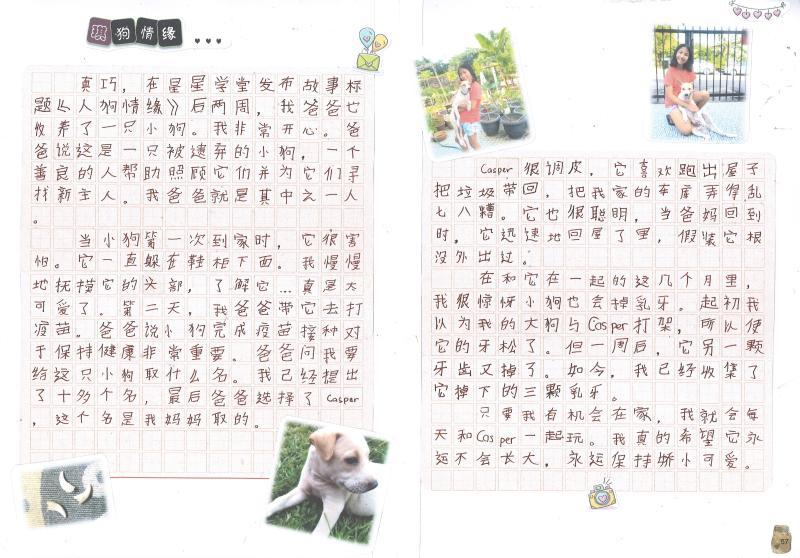 琪狗情缘...
真巧，在星星学堂发布故事标
题《人狗情缘》后两周，我爸爸也
收养了一只小狗。我非常开心。爸
爸说这是一只被遗弃的小狗，一个
善良的人帮助照顾它们并为它们寻
找新主人。我爸爸就是其中之一人
。
当小狗第一次到家时，它很害
怕。它一直躲在鞋柜下面。我慢慢
地抚摸它的头部，了解它...真是太
可爱了。第二天，我爸爸带它去打
疫苗。爸爸说小狗完成疫苗接种对
于保持健康非常重要。爸爸问我要
给这只小狗取什么名。我已经提出
了十多个名，最后爸爸选择了Casper
，这个名是我妈妈取的。
Casper很调皮，它喜欢跑出屋子
把垃圾带回，把我家的车库弄得乱
七八糟。它也很聪明，当爸妈回到
时，它迅速地回屋了里，假装它根
没外出过。
在和它在一起的这几个月里，
我很惊讶小狗也会掉乳牙。起初我
以为我的大狗与Casper打架，所以使
它的牙松了。但一周后，它另一颗
牙齿又掉了。如今，我已经收集了
它掉下的三颗乳牙。
只要我有机会在家，我就会每
天和Casper一起玩。我真的希望它永
远不会长大，永远保持娇小可爱。
57